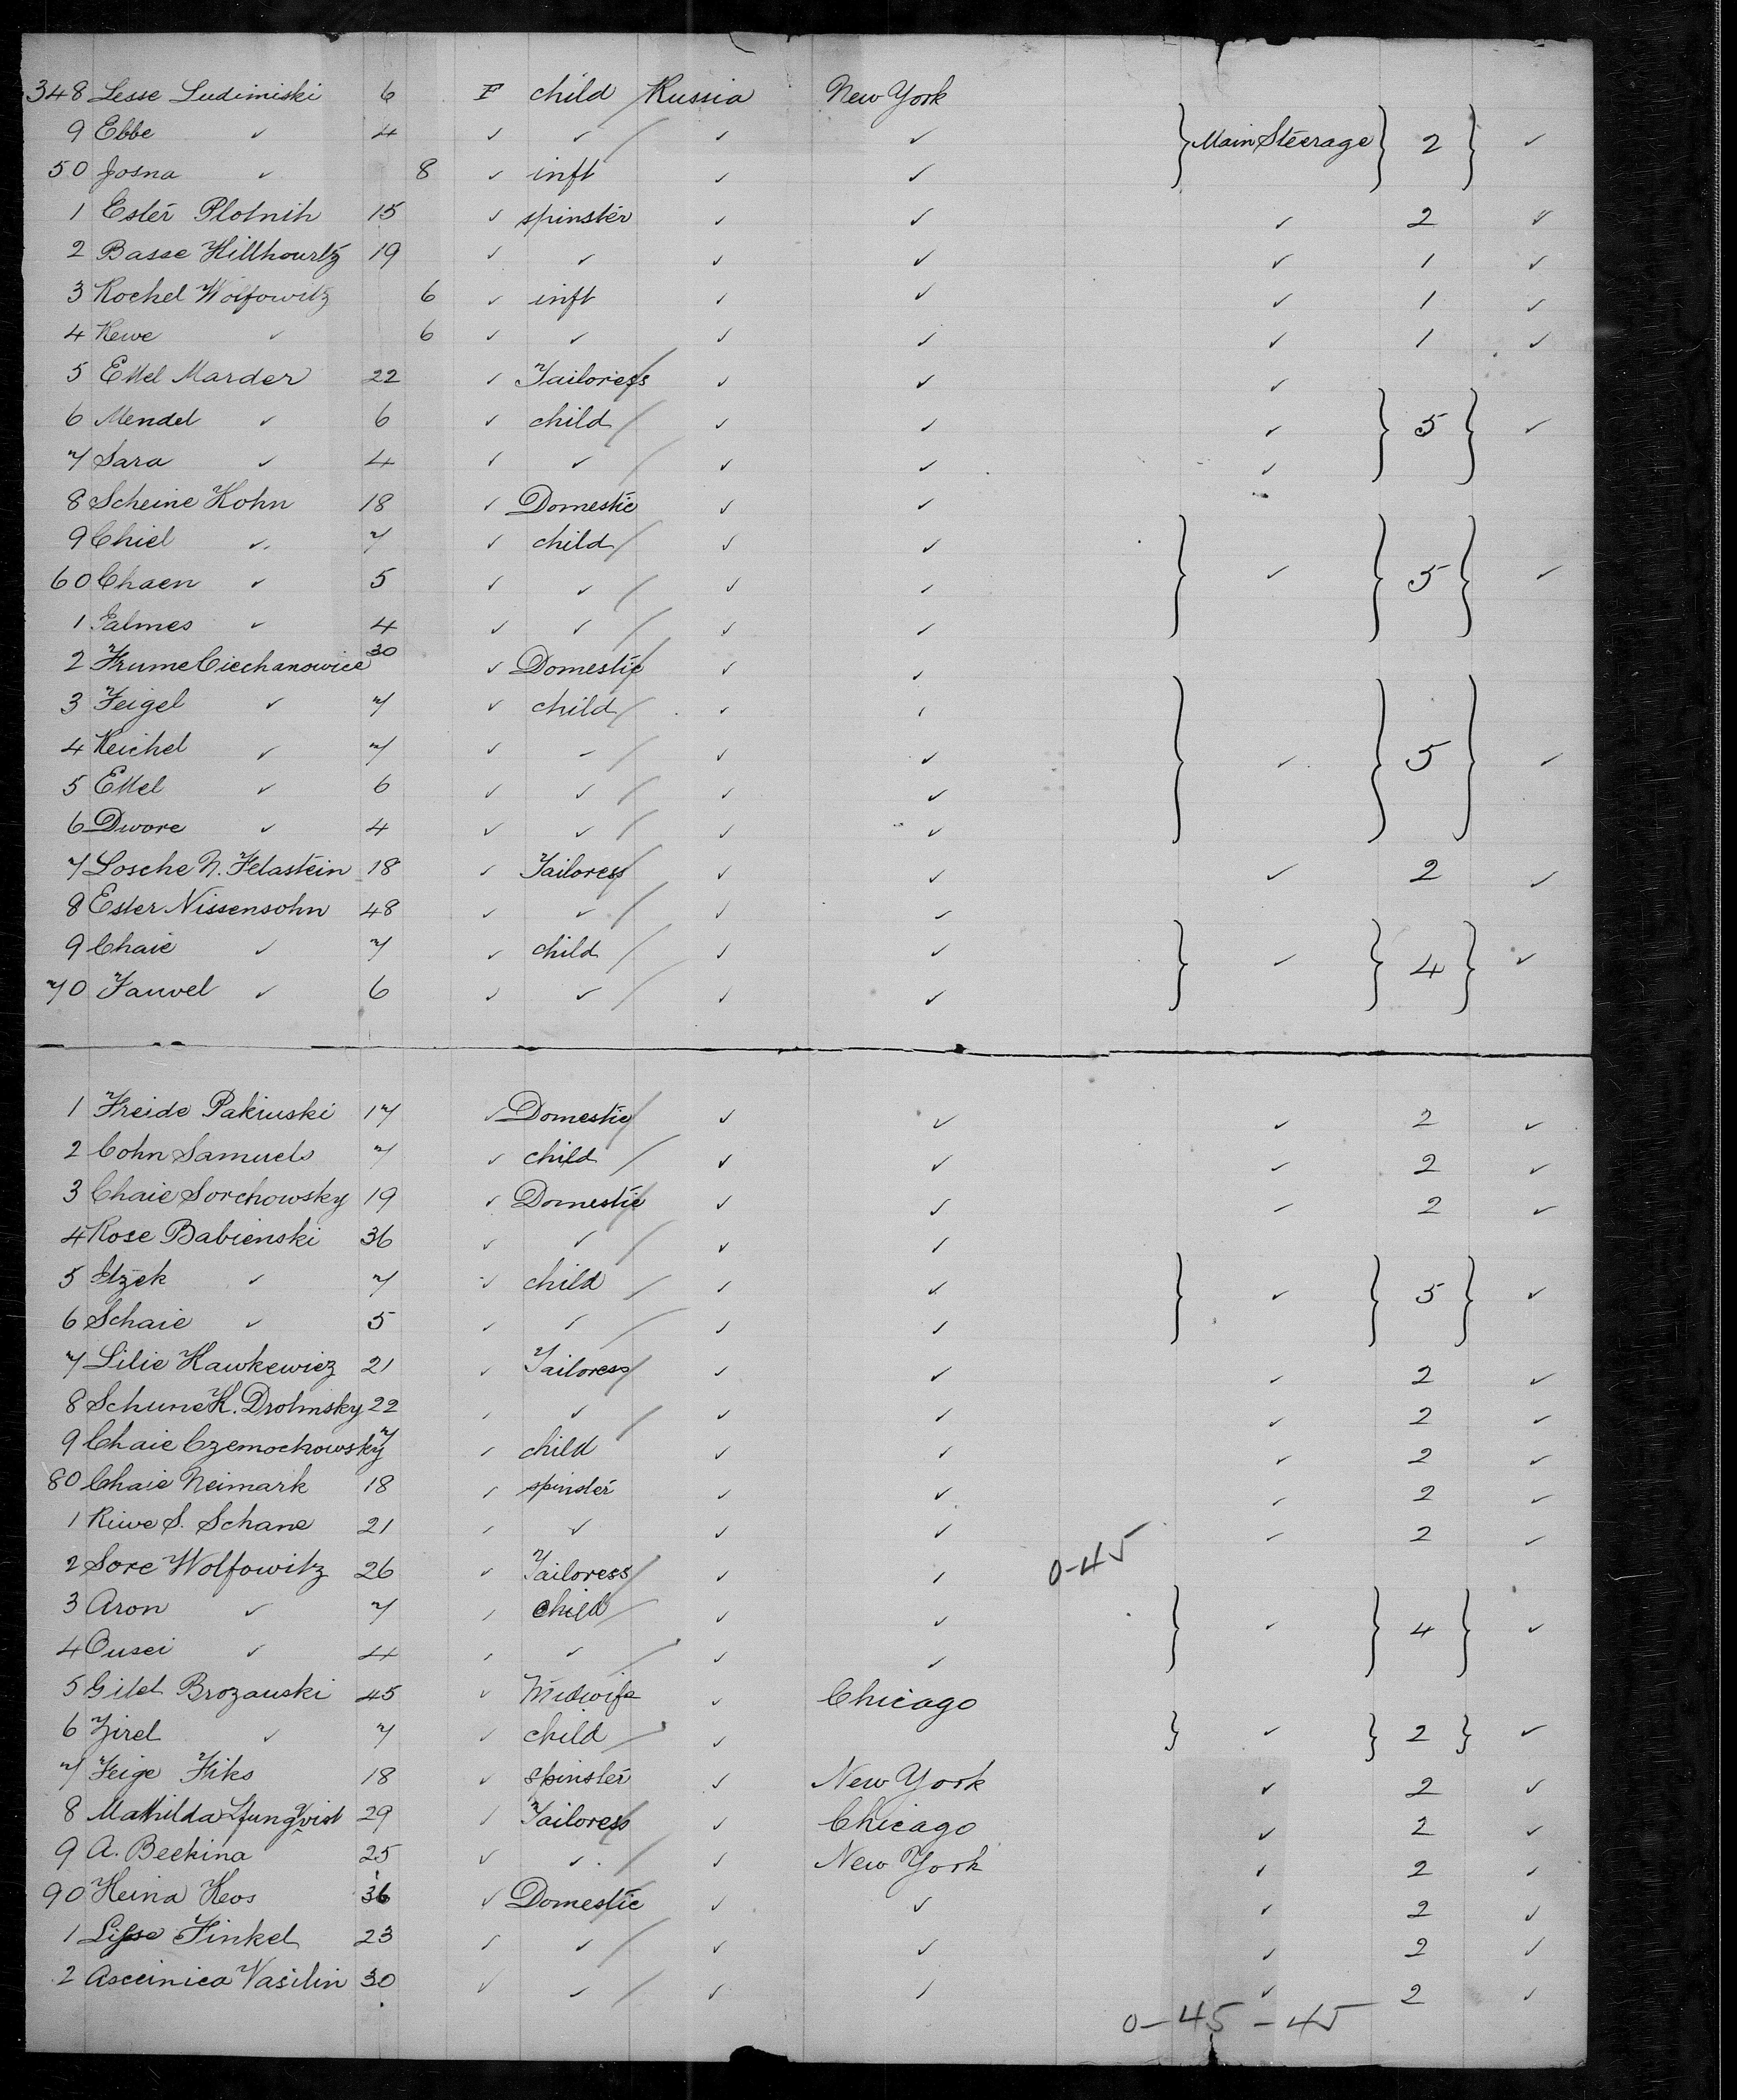 348 Lesse Ludiminski 6 F child Russia New York
9 Ebbe ✓ 4 ✓ ✓ ✓ ✓ Main Steerage 2 ✓
50 Josna ✓ 8 ✓ inft ✓ ✓
1 Ester Plotnih 15 ✓ spinster ✓ ✓ ✓ 2 ✓
2 Basse Hillhourtz 19 ✓ ✓ ✓ ✓ ✓ 1 ✓
3 Rochel Wolfowitz 6 ✓ inft ✓ ✓ ✓ 1 ✓
4 Kewe ✓ 6 ✓ ✓ ✓ ✓ ✓ 1 ✓
5 Ettel Marder 22 ✓ Tailoress ✓ ✓ ✓
6 Mendel ✓ 6 ✓ child ✓ ✓ ✓ 5 ✓
7 Sara ✓ 4 ✓ ✓ ✓ ✓ ✓
8 Scheine Kohn 18 ✓ Domestic ✓ ✓
9 Chiel ✓ 7 ✓ child ✓ ✓
60 Chaen ✓ 5 ✓ ✓ ✓ ✓ ✓ 5 ✓
1 Talmes ✓ 4 ✓ ✓ ✓ ✓
2 Frume Ciechanowice 30 ✓ Domestic ✓ ✓
3 Feigel ✓ 7 ✓ child ✓ ✓
4 Keichel ✓ 7 ✓ ✓ ✓ ✓ ✓ 5 ✓
5 Ettel ✓ 6 ✓ ✓ ✓ ✓
6 Dwore ✓ 4 ✓ ✓ ✓ ✓
7 Losche N. Felastein 18 ✓ Tailoress ✓ ✓ ✓ 2 ✓
8 Ester Nissensohn 48 ✓ ✓ ✓ ✓
9 Chaie ✓ 7 ✓ child ✓ ✓ ✓ 4 ✓
70 Fauvel ✓ 6 ✓ ✓ ✓ ✓
1 Freide Pakiuski 17 ✓ Domestic ✓ ✓ ✓ 2 ✓
2 Cohn Samuels 7 ✓ child ✓ ✓ ✓ 2 ✓
3 Chaie Sorchowsky 19 ✓ Domestic ✓ ✓ ✓ 2 ✓
4 Rose Babienski 36 ✓ ✓ ✓ ✓
5 Itzek ✓ 7 ✓ child ✓ ✓ ✓ 5 ✓
6 Schaie ✓ 5 ✓ ✓ ✓ ✓
7 Lilie Hawkewicz 21 ✓ Tailoress ✓ ✓ ✓ 2 ✓
8 Schune K. Drohnsky 22 ✓ ✓ ✓ ✓ ✓ 2 ✓
9 Chaie Czemochowsky 7 ✓ child ✓ ✓ ✓ 2 ✓
80 Chaie Neimark 18 ✓ spinster ✓ ✓ ✓ 2 ✓
1 Riwe S. Schane 21 ✓ ✓ ✓ ✓ ✓ 2 ✓
2 Sore Wolfowitz 26 ✓ Tailoress ✓ ✓ 0-45
3 Aron ✓ 7 ✓ child ✓ ✓ ✓ 4 ✓
4 Ousei ✓ 4 ✓ ✓ ✓ ✓
5 Gitel Brozauski 45 ✓ Midwife ✓ Chicago
6 Zirel ✓ 7 ✓ child ✓ ✓ 2 ✓
7 Feige Fiks 18 ✓ spinster ✓ New York ✓ 2 ✓
8 Mathilda Ljungqvist 29 ✓ Tailoress ✓ Chicago ✓ 2 ✓
9 A. Beekina 25 ✓ ✓ ✓ New York ✓ 2 ✓
90 Heina Keos 36 ✓ Domestic ✓ ✓ ✓ 2 ✓
1 Lipse Finkel 23 ✓ ✓ ✓ ✓ ✓ 2 ✓
2 Asceinica Vasilin 30 ✓ ✓ ✓ ✓ ✓ 2 ✓
0-45-45